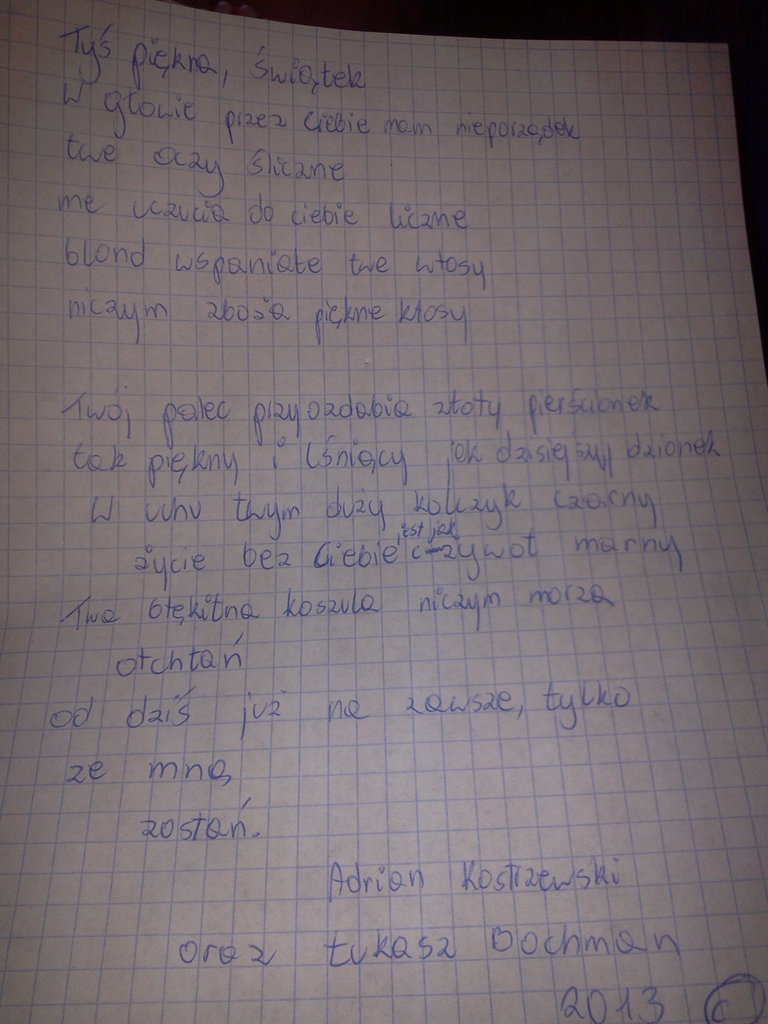 Tyś piękna, Świątek
W głowie przez Ciebie mam nieporządek
twe oczy śliczne
me uczucia do ciebie liczne
blond wspaniałe twe włosy
niczym zboża piękne kłosy
Twój palec przyozdabia złoty pierścionek
tak piękny i lśniący jak dzisiejszy dzionek
W uchu twym duży kolczyk czarny
życie bez Ciebie jest jak żywot marny
Twa błękitna koszula niczym morza
otchłań
od dziś już na zawsze, tylko
ze mną
zostań.
Adrian Kostrzewski
oraz Łukasz Bochman
2013 ©